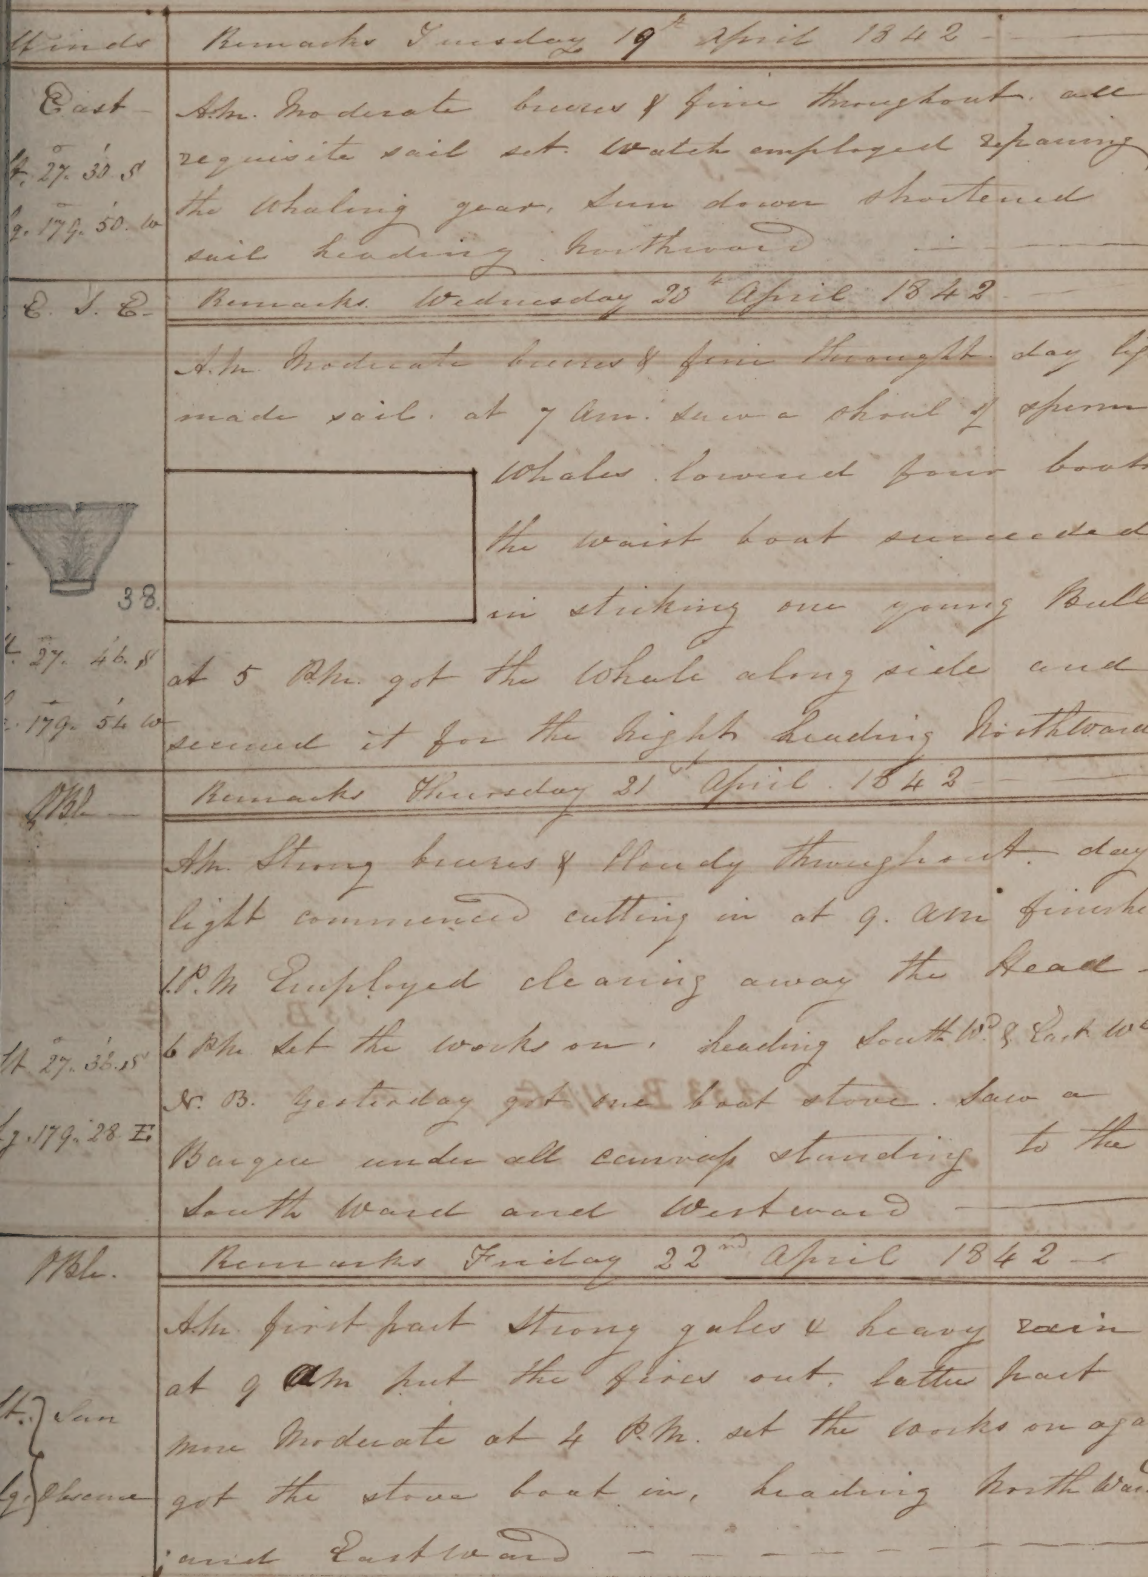 Winds Remarks Tuesday 19th April 1842
East
A.M. Moderate breezes & fine throughout. all
requisite sail set. Watch employed repairing
Lt. 27. 30. S
the Whaling gear. Sun down shortened
Lg. 179. 50. W
sail heading Northward
E. S. E. Remarks. Wednesday 20th April 1842
A.M. Moderate breezes & fine throught. day lig
made sail. at 7 Am. saw a shoal of sperm
Whales lowered four boats
the waist boat succeeded
38.
in striking one young Bull
Lt. 27. 46. S
at 5 P.M. got the Whale along side and
179. 54 W
secured it for the Night heading Northward
Remarks Thursday 21st April. 1842
AM. Strong breezes & Cloudy throughout. day
light commenced cutting in at 9. am finishe
1.P.M Employed cleaning away the Head
Lt. 27. 36. S
6 P.M. Set the works on. heading South Wd. & East Wd
N. B. Yesterday got one boat stove. Saw a
Lg. 179. 28 E
Barque under all canvass standing to the
South Ward and Westward
Remarks Friday 22nd April 1842
AM first part Strong gales & heavy rain
at 9 am put the fires out. latter part
Lt. Sun
more Moderate at 4 P.M. set the works on aga
Lg. Obscure
got the stove boat in, heading North War
and Eastward